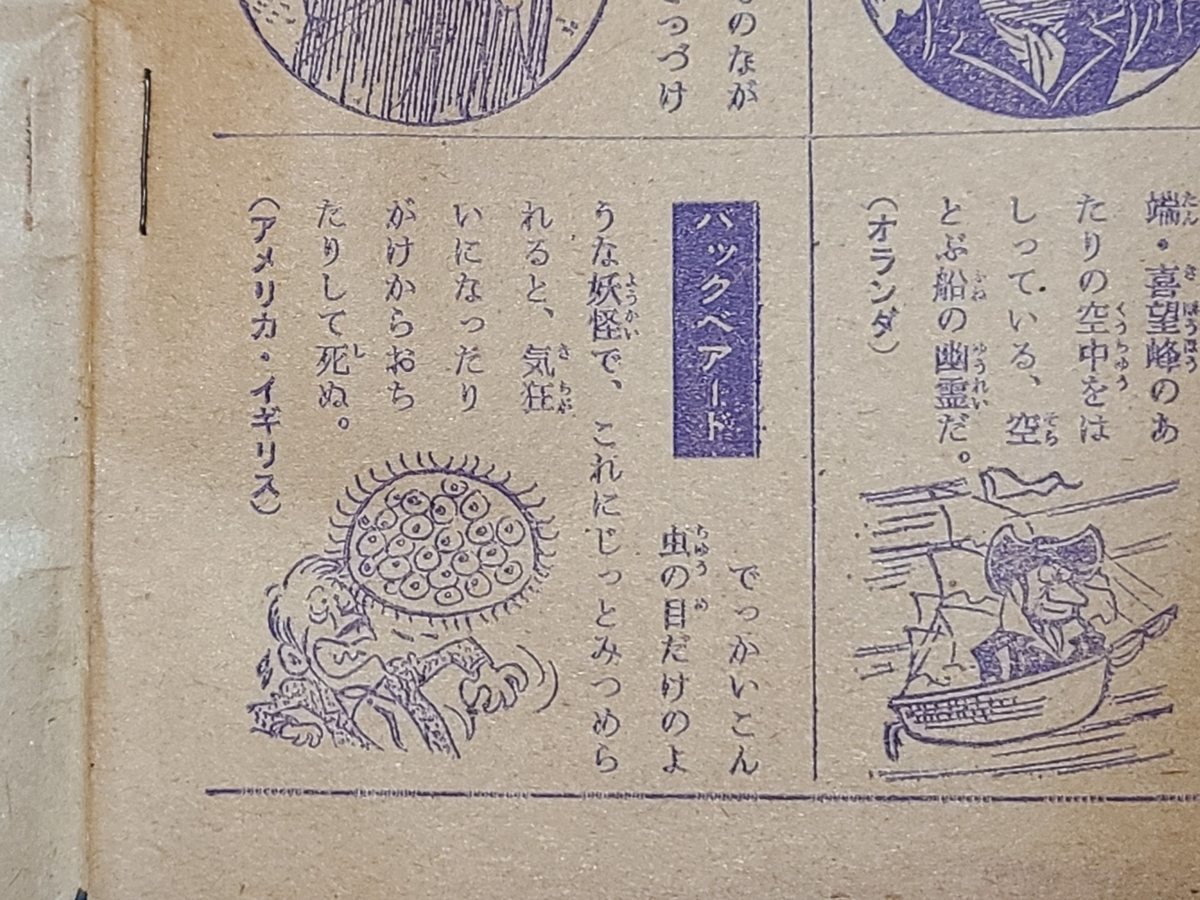 ものなが
つづけ
端・喜望峰のあ
たりの空中をは
しっている、空
とぶ船の幽霊だ。
(オランダ)
バックベアード
でっかいこん
虫の目だけのよ
うな妖怪で、これにじっとみつめら
れると、気狂
いになったり
がけからおち
たりして死ぬ。
(アメリカ・イギリス)